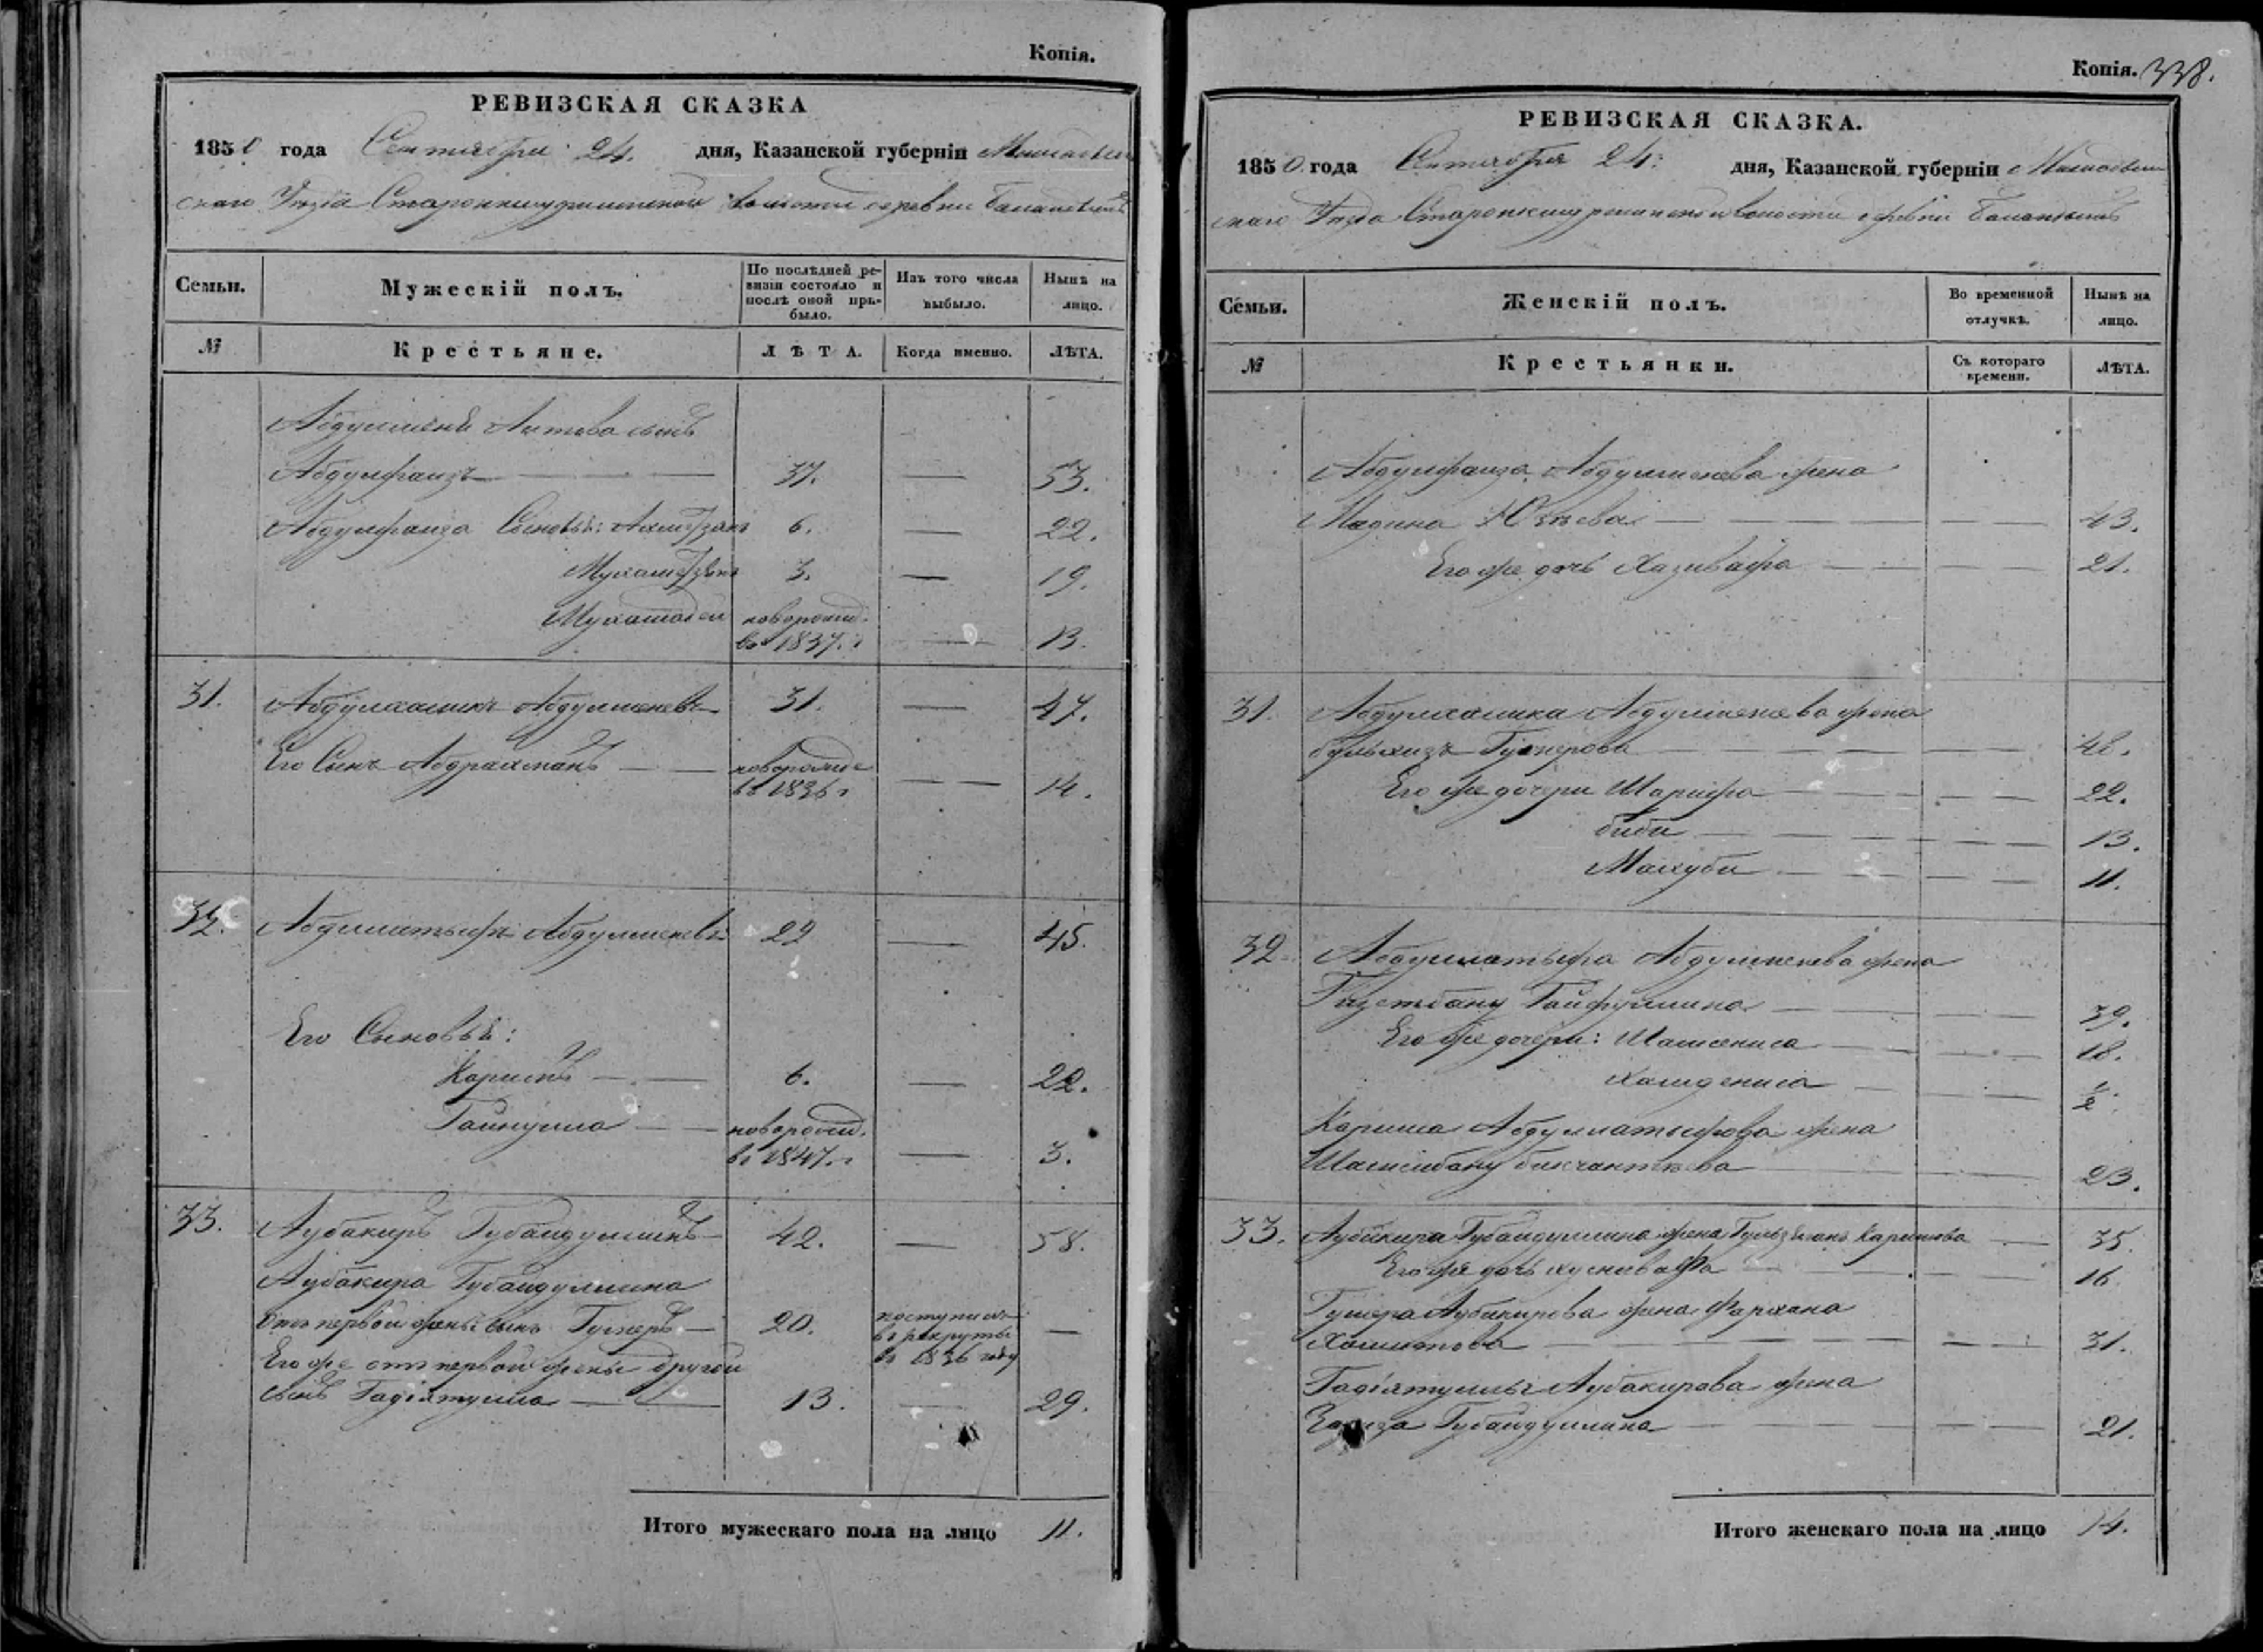 Копія.
РЕВИЗСКАЯ СКАЗКА
1850 года Сентября 24. дня, Казанской губерніи Мамадыш
скаго Уѣзда волости деревни
Семьи.
Мужескій полъ.
По послѣдней ре-
визіи состояло и
послѣ оной при-
было.
Изъ того числа
выбыло.
Нынѣ на
лицо.
№
Крестьяне.
ЛѢТА.
Когда именно.
ЛѢТА.
сынъ
Абдулфаизъ — 37. — 53.
Абдулфаиза Сыновья: Ахметзянъ 6. — 22.
Мухаметзянъ 3. — 19.
новорожд.
въ 1837. г — 13.
31. Абдулхаликъ Абдулменевъ 31. — 47.
Его Сынъ Абдрахманъ — новорожде
въ 1836 г — 14.
32. Абдулатыфъ Абдулменевъ 22 — 45.
Его Сыновья:
Каримъ — 6. — 22.
Гайнулла — новорожд.
въ 1847. г — 3.
33. Аубакиръ Губайдуллинъ 42. — 58.
Аубакира Губайдуллина
отъ первой жены сынъ Гумеръ — 20. поступилъ
въ рекруты
въ 1836 году —
Его же отъ первой жены другой
сынъ Гадіятулла — 13. — 29.
Итого мужескаго пола на лицо 11.
Копія. 338.
РЕВИЗСКАЯ СКАЗКА.
1850. года Сентября 24. дня, Казанской губерніи Мамадыш
скаго Уѣзда волости деревни
Семьи.
Женскій полъ.
Во временной
отлучкѣ.
Нынѣ на
лицо.
№
Крестьянки.
Съ котораго
времени.
ЛѢТА.
Абдулфаиза Абдулменева жена
Мадина — 43.
Его же дочь — 21.
31. Абдулхалика Абдулменева жена
Гумерова — 48.
Его же дочери Шарифа — 22.
Биби — 13.
Махуби — 11.
32. Абдулатыфа Абдулменева жена
Гайфуллина — 39.
Его же дочери: Шамсениса — 18.
— ½.
Карима Абдуллатыфова жена
Шамсибану — 23.
33. Аубакира Губайдуллина жена Каримова — 35.
Его же дочь — 16.
Гумера Аубакирова жена Фархана
Хамитова — 31.
Гадіятуллы Аубакирова жена
Губайдуллина — 21.
Итого женскаго пола на лицо 14.